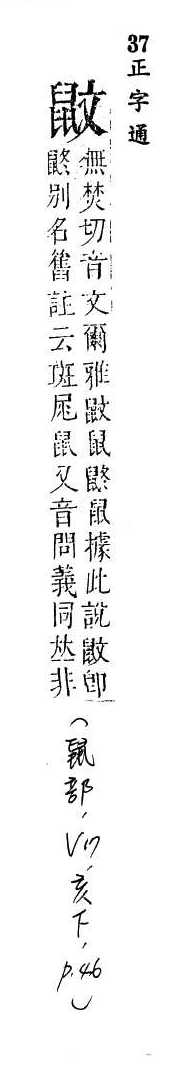 37正字通
鼤
無焚切音文爾雅鼤鼠鼨鼠據此說鼤卽
鼨別名舊註云斑尾鼠又音問義同𠀤非
(鼠部, V17, 亥下, p.46)